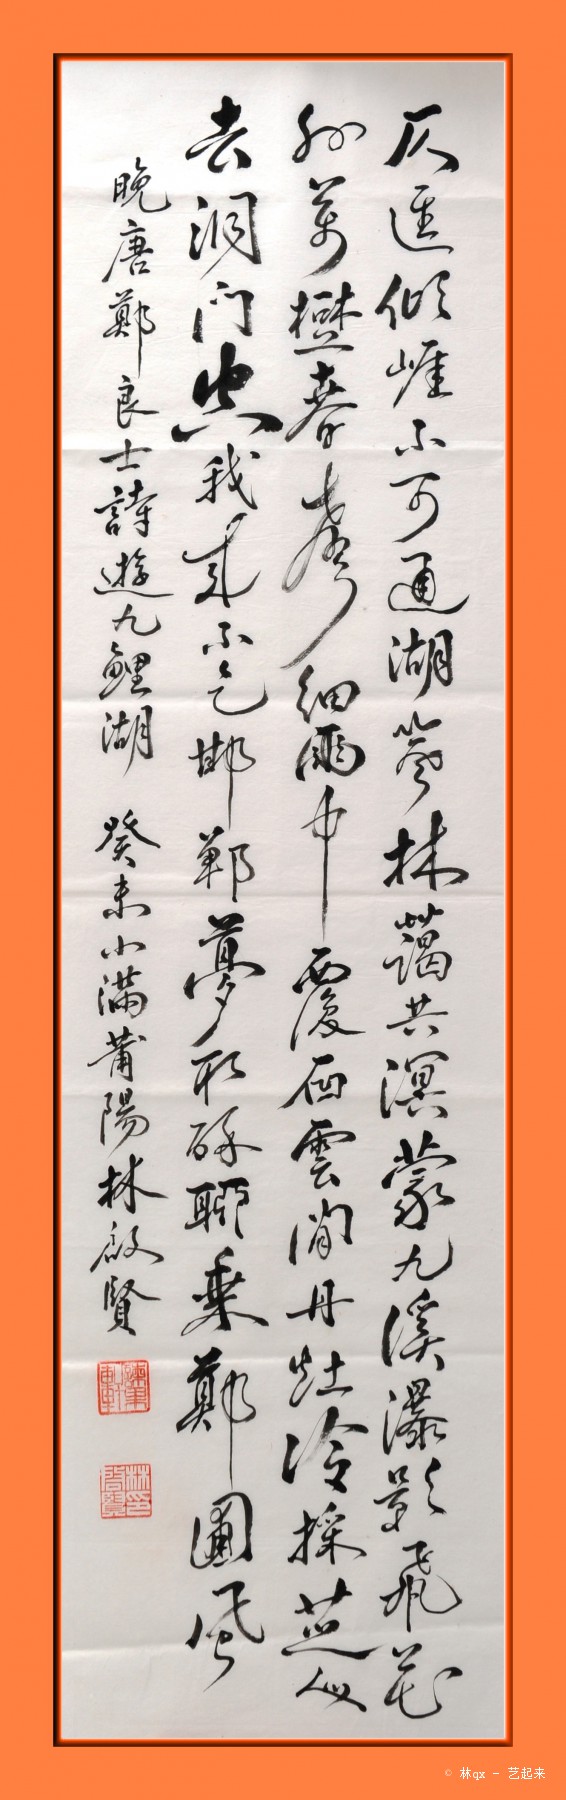 仄逕傾崕不可通湖嵐林藹共溟蒙九溪瀑影飛花
外萬樹春聲細雨中覆石雲閒丹灶冷採芝仙
去洞門空我來不乞邯鄲夢取醉聊乘鄭圃風
晚唐鄭良士詩遊九鯉湖 癸未小滿莆陽林啟賢
© 林qx - 艺起来